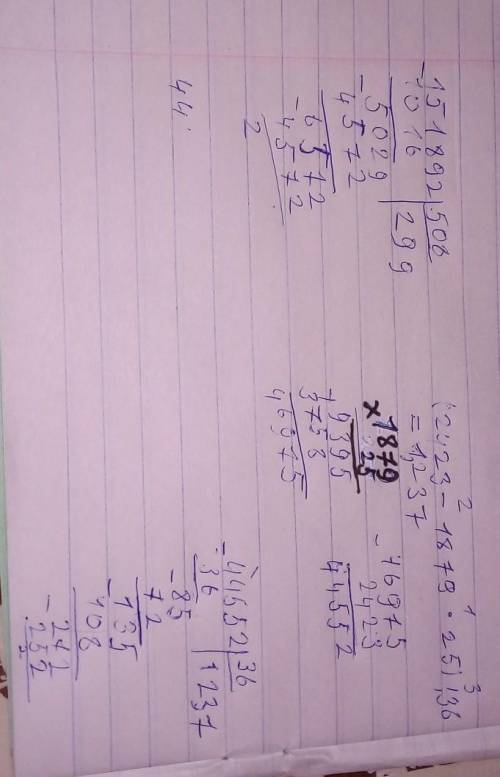 2 1 3
(2423 - 1879 · 25) : 36
= 1237
151892 | 508
- 1016 | 299
5029
- 4572
6572
- 4572
2
44
1879
× 25
9395
+ 3758
46975
- 46975
2423
44552
- 44552 | 36
36 | 1237
- 85
72
- 135
108
- 271
252